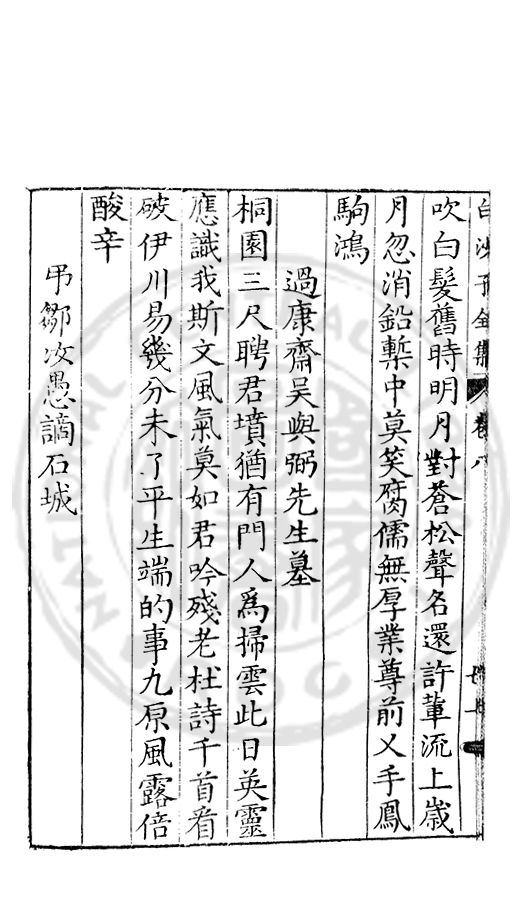 白沙子全集 卷八
吹白髮舊時明月對蒼松聲名還許輩流上歲
月忽消鉛槧中莫笑腐儒無厚業尊前乂手鳳
駒鴻
過康齋吳與弼先生墓
桐園三尺聘君墳猶有門人爲掃雲此日英靈
應識我斯文風氣莫如君吟殘老杜詩千首看
破伊川易幾分未了平生端的事九原風露倍
酸辛
弔鄒汝愚謫石城